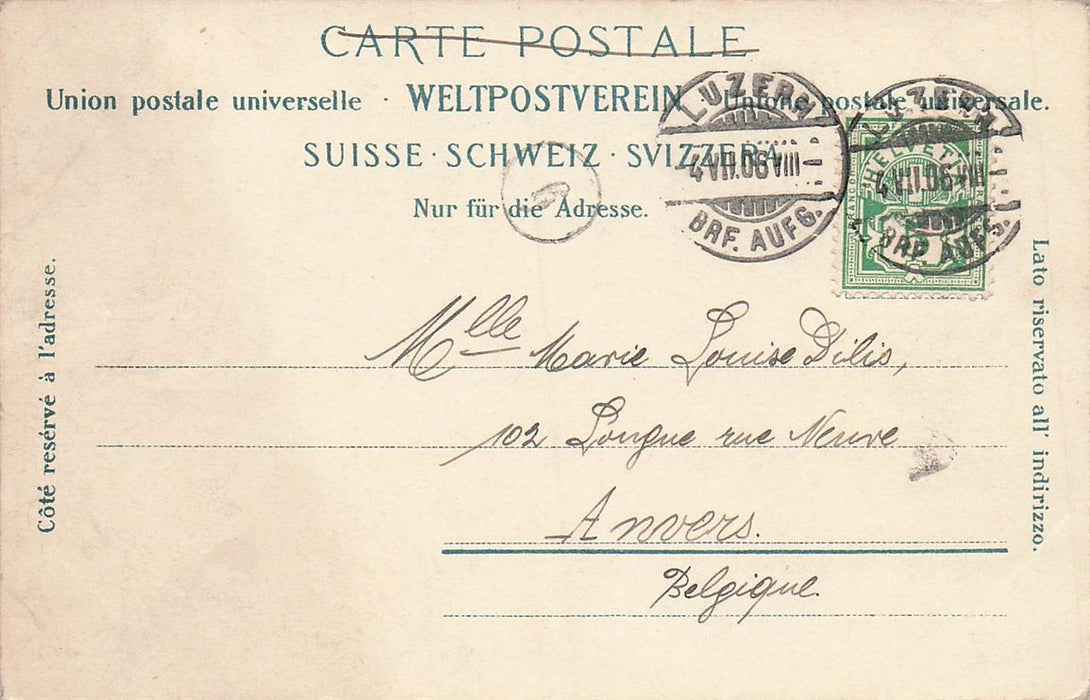 CARTE POSTALE
Union postale universelle · WELTPOSTVEREIN · Unione postale universale.
SUISSE · SCHWEIZ · SVIZZERA
Nur für die Adresse.
LUZERN
4 VII.06 VIII
BRF. AUFG.
LUZERN
4 VII.06 VIII
BRF. AUFG.
HELVETIA
5
6
Côté resérvé à l'adresse.
Lato riservato all' indirizzo.
Mlle Marie Louise Dilis,
102 Longue rue Neuve
Anvers.
Belgique.